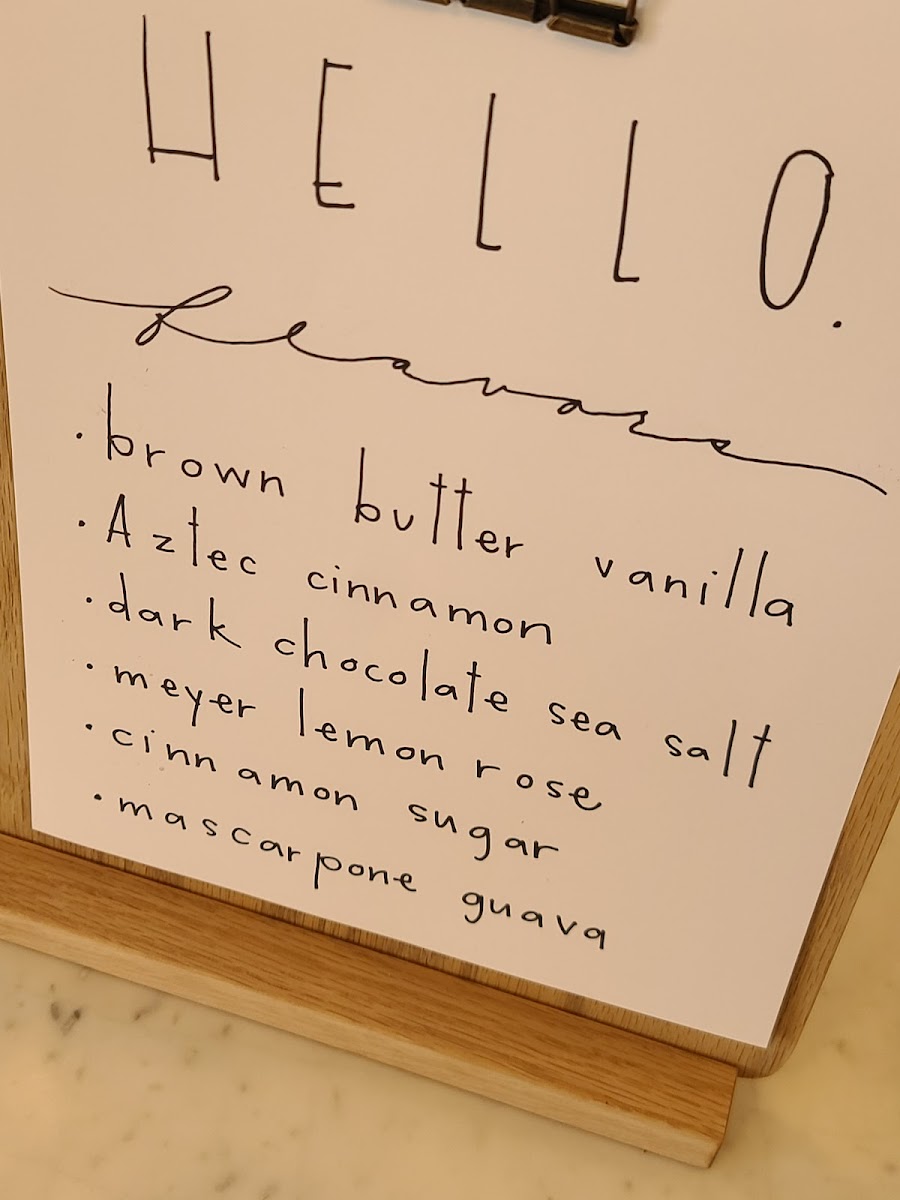 HELLO.
flavors
· brown butter vanilla
· Aztec cinnamon
· dark chocolate sea salt
· meyer lemon rose
· cinnamon sugar
· mascarpone guava